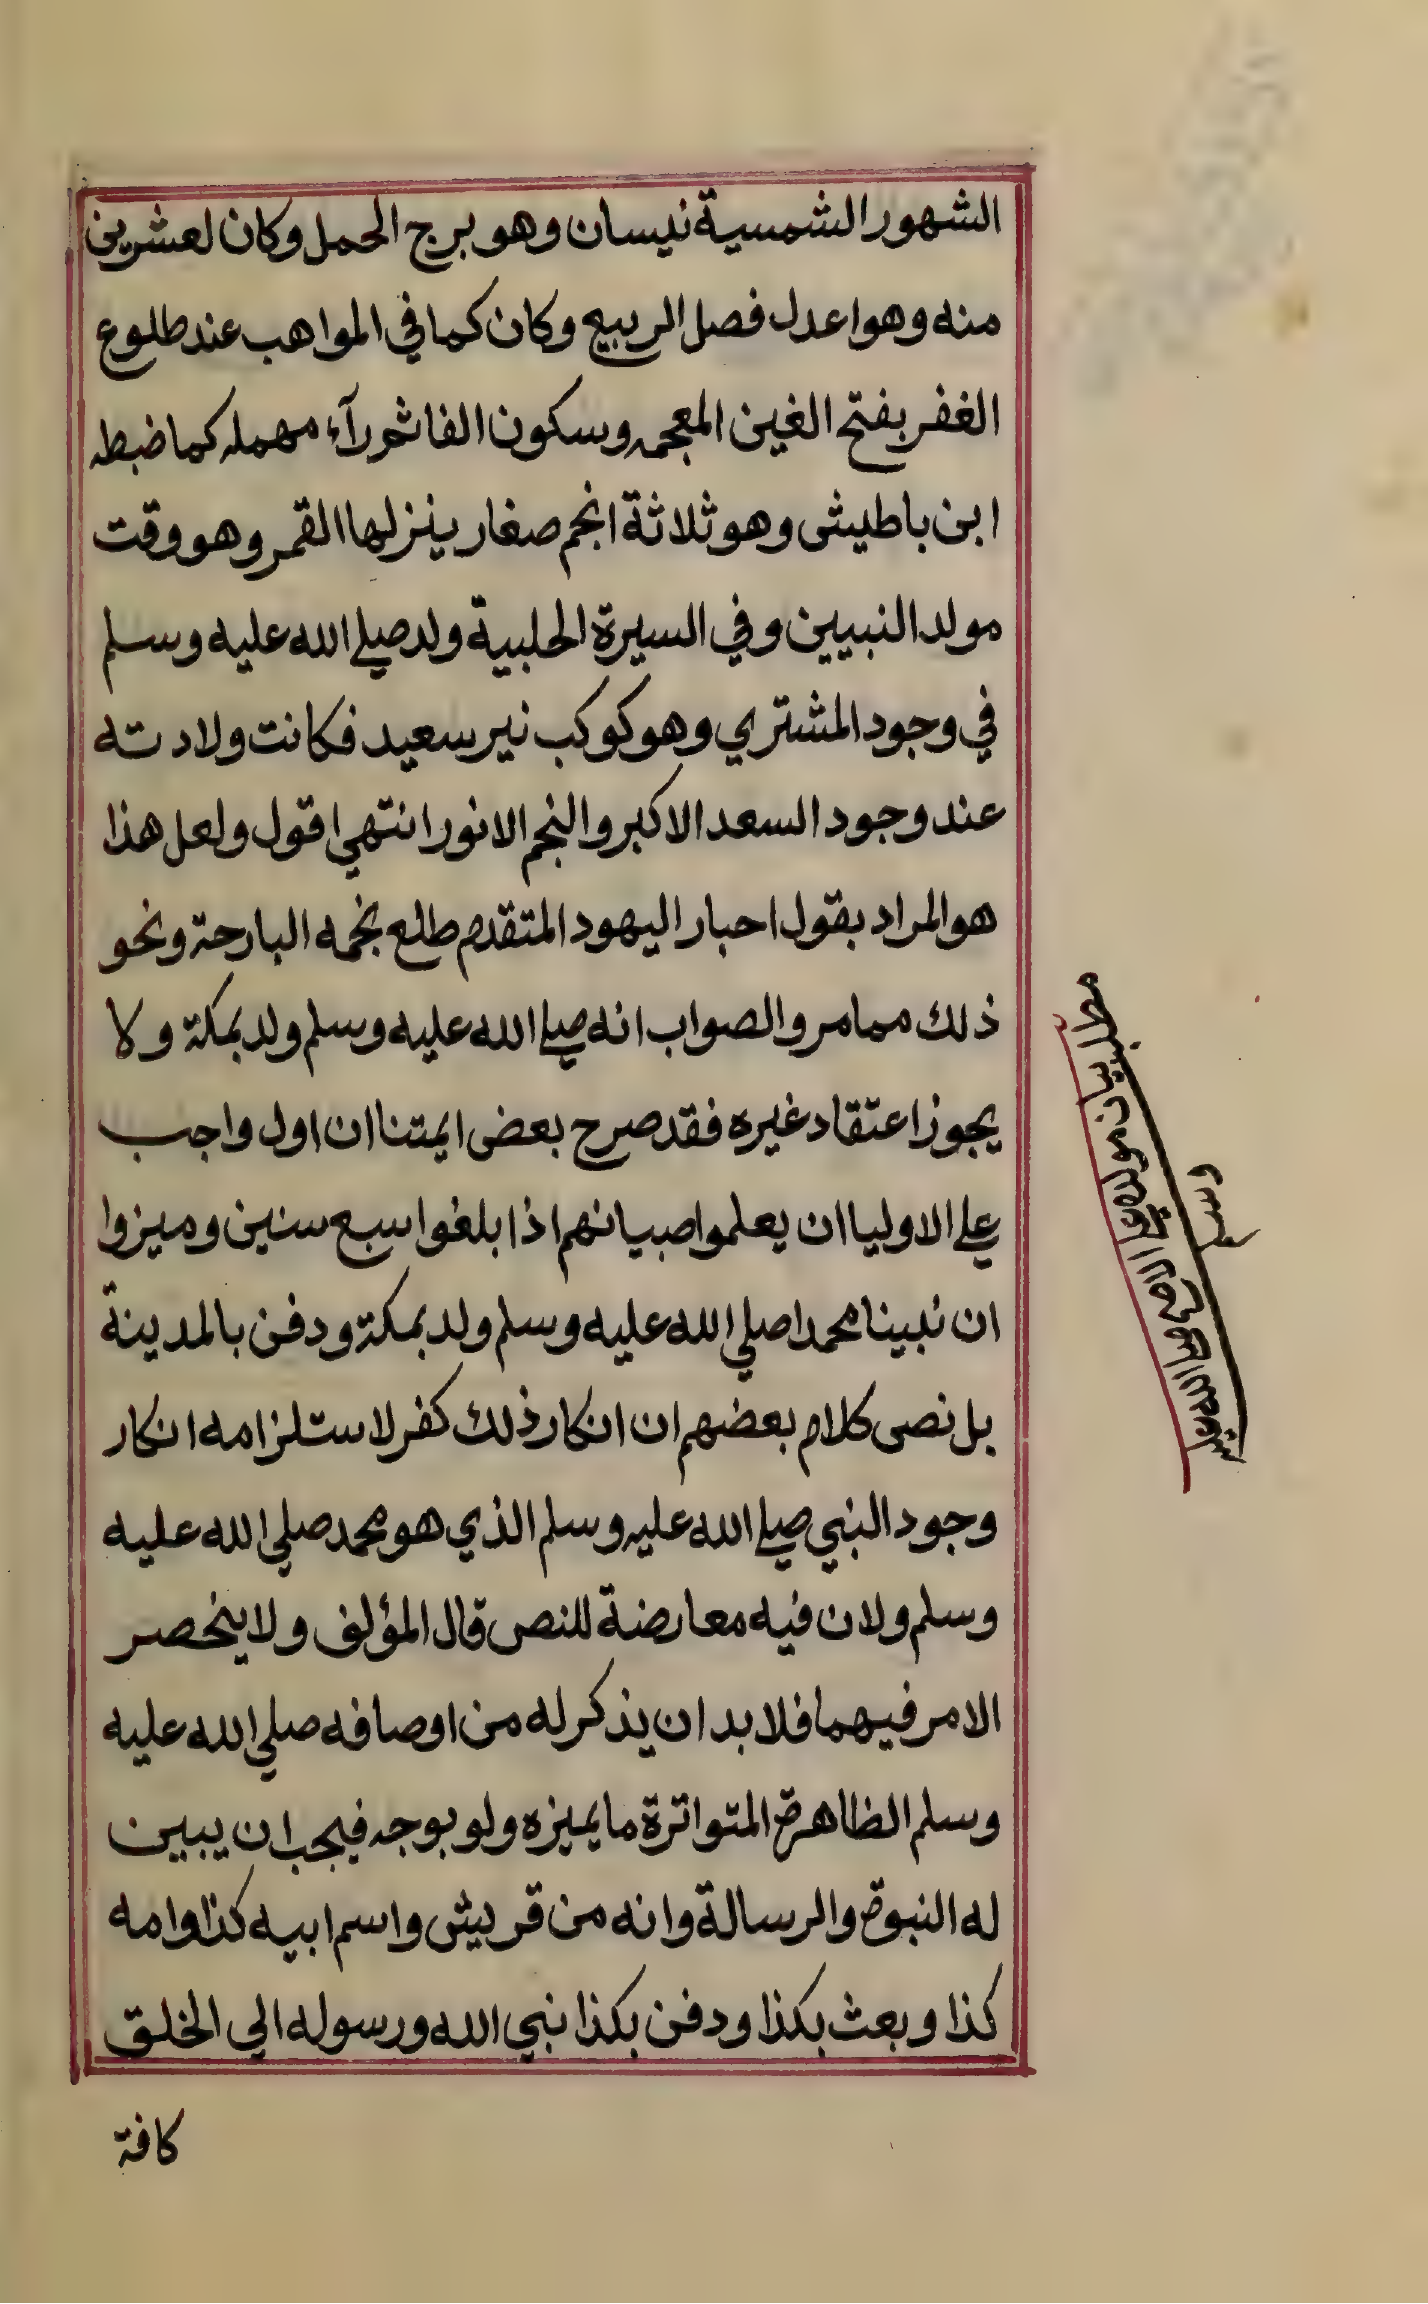 الشهور الشمسية نيسان وهو برج الحمل وكان لعشرين
منه وهو اعدل فصل الربيع وكان كما في المواهب عند طلوع
الغفر بفتح الغين المعجمه وسكون الفا ثم رآء مهمله كما ضبطه
ابن باطيش وهو ثلاثة انجم صغار ينزلها القمر وهو وقت
مولد النبيين وفي السيرة الحلبية ولد صلي الله عليه وسلم
في وجود المشتري وهو كوكب نير سعيد فكانت ولادته
عند وجود السعد الاكبر والنجم الانور انتهي اقول ولعل هذا
هو المراد بقول احبار اليهود المتقدم طلع نجمه البارحة ونحو
ذلك مما مر والصواب انه صلي الله عليه وسلم ولد بمكة ولا
يجوز اعتقاد غيره فقد صرح بعض ايمتنا ان اول واجب
علي الاوليا ان يعلموا صبيانهم اذا بلغوا سبع سنين وميزوا
ان نبينا محمدا صلي الله عليه وسلم ولد بمكة ودفن بالمدينة
بل نص كلام بعضهم ان انكار ذلك كفر لاستلزامه انكار
وجود النبي صلي الله عليه وسلم الذي هو محمد صلي الله عليه
وسلم ولان فيه معارضة للنص قال المؤلف ولا ينحصر
الامر فيهما فلا بد ان يذكر له من اوصافه صلي الله عليه
وسلم الظاهرة المتواترة ما يميزه ولو بوجه فيجب ان يبين
له النبوة والرسالة وانه من قريش واسم ابيه كذا وامه
كذا وبعث بكذا ودفن بكذا نبي الله ورسوله الي الخلق
كافة
مطلب بيان مولده صلي الله عليه
وسلم